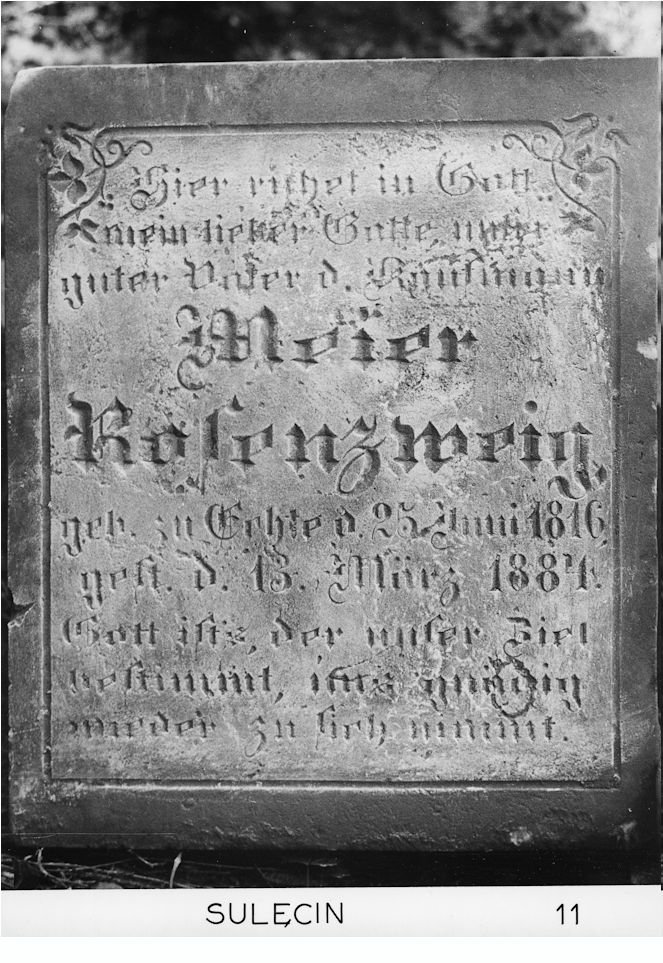 Hier ruhet in Gott
mein lieber Gatte, unser
guter Vater d. Kaufmann
Meier
Rosenzweig,
geb. zu Echte d. 25. Juni 1816,
gest. d. 13. März 1884.
Gott ist's, der unser Ziel
bestimmt, uns gnädig
wieder zu sich nimmt.
SULĘCIN 11